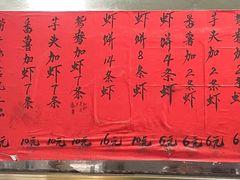 芋头加2条虾 6元
番薯加2条虾 6元
虾饼4条虾 6元
虾饼8条虾 10元
虾饼14条虾 16元
加虾7条 10元
芋头加虾7条 10元
番薯加虾7条 10元
元